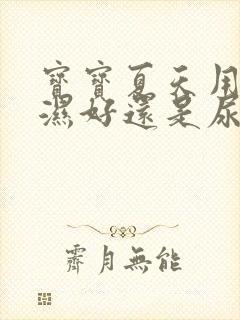 寶寶夏天用
濕好還是尿
霽月無能